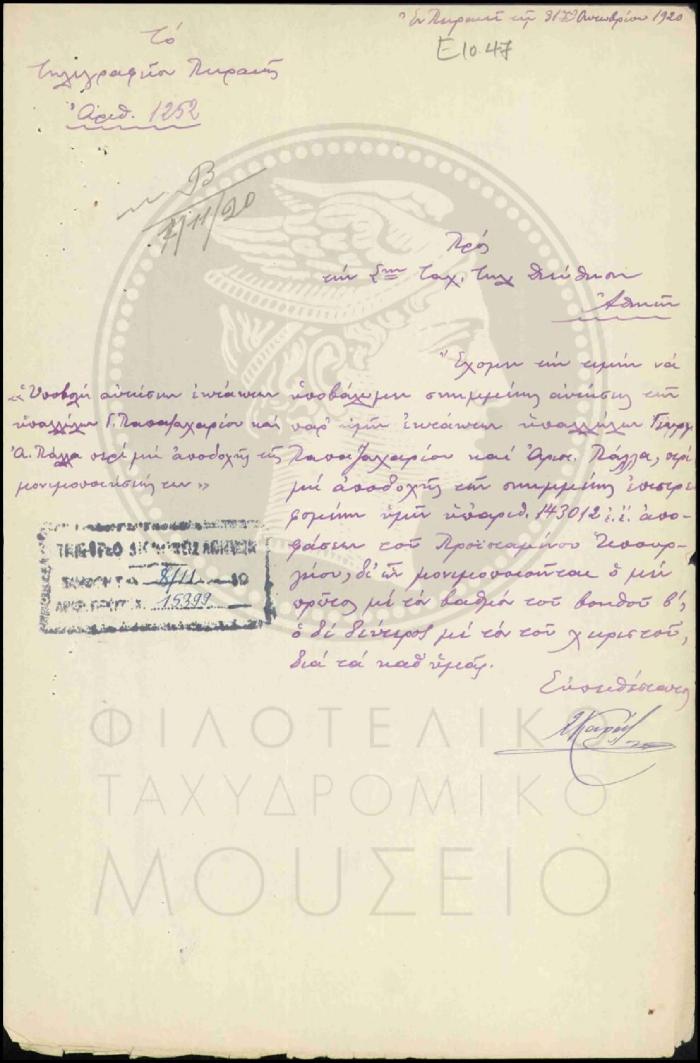 Ἐν Πειραιεῖ τῇ 31 Ὀκτωβρίου 1920
Ε10.47
Τό
Τηλεγραφεῖον Πειραιῶς
Ἀριθ. 1252
Β
1/11/20
Πρός
τήν Ταχ. Τηλ. Διεύθυνσιν
Ἀθηνῶν
«Ὑποβολή αἰτήσεων ἐκτάκτων
ὑπαλλήλων Γ. Παπαζαχαρίου καί
Ἀ. Πάλλα περί μή ἀποδοχῆς τῆς
μονιμοποιήσεώς των»
Ἔχομεν τήν τιμήν νά
ὑποβάλωμεν συνημμένως αἰτήσεις τῶν
παρ' ἡμῖν ἐκτάκτων ὑπαλλήλων Γεωργ.
Παπαζαχαρίου καί Ἀρισ. Πάλλα, περί
μή ἀποδοχῆς τῶν συνημμένως ἐπιστρε-
φομένων ὑμῖν ὑπ' ἀριθ. 143012 ἐ.ἔ. ἀπο-
φάσεων τοῦ Προϊσταμένου Ὑπουρ-
γείου, δι' ὧν μονιμοποιοῦνται ὁ μέν
πρῶτος μέ τόν βαθμόν τοῦ βοηθοῦ β',
ὁ δέ δεύτερος μέ τόν τοῦ χειριστοῦ,
διά τά καθ' ὑμᾶς.
Εὐπειθέστατος
8/11
15399
ΦΙΛΟΤΕΛΙΚΟ
ΤΑΧΥΔΡΟΜΙΚΟ
ΜΟΥΣΕΙΟ